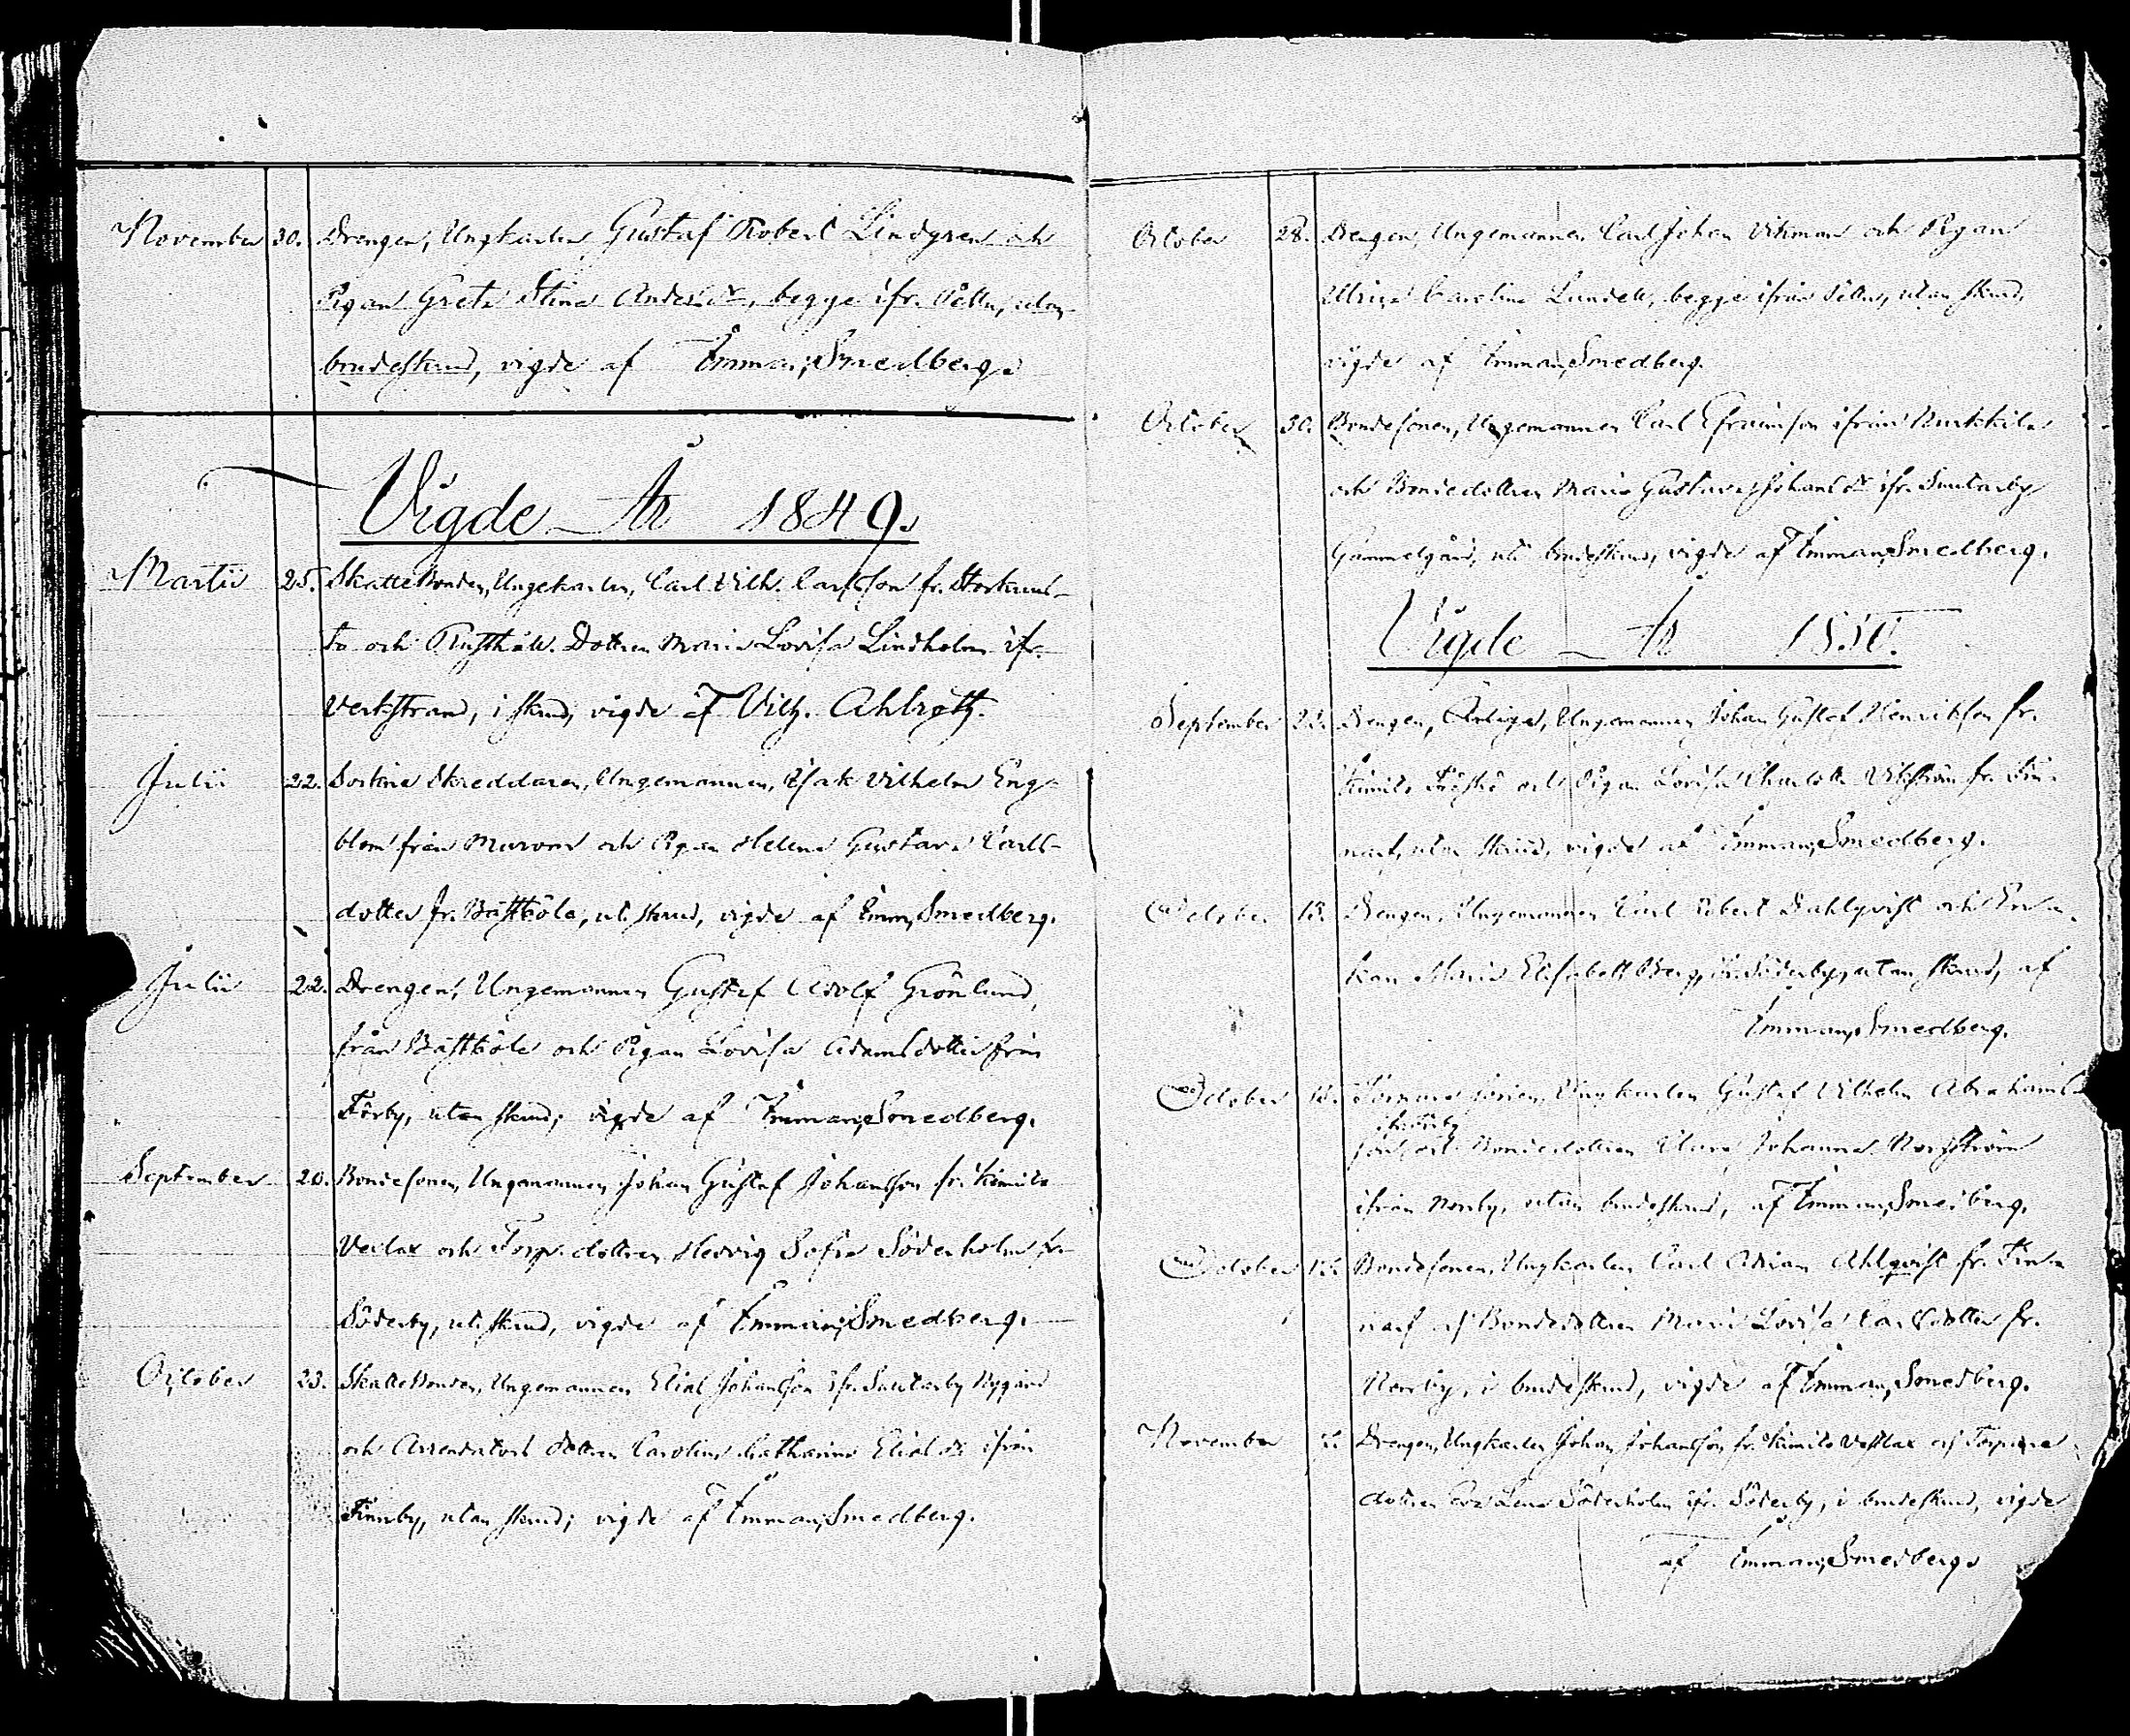 November 30. Drengen, Ungkarlen Gustaf Robert Lindgren och
Pigan Greta Stina Andersdr, begge ifr. Pettu, utan
brudeskrud, vigde af Imman; Smedberg.
Vigde År 1849.
Martii 25. Skattebonden, Ungekarlen, Carl Vilh. Carlsson fr.
to och Rusth: Dottren Maria Lovisa Lindholm ifr.
Verkstrand, i skrud, vigde af Vilh. Ahlroth.
Julii 22. Skreddaren, Ungemannen, Isak Vilhelm Eng-
blom från och Pigan Helena Gustava Carls-
dotter fr. Båtkböle, ut. skrud, vigde af Imm, Smedberg.
Julii 22. Drengen, Ungemannen Gustaf Adolf Grönlund,
från och Pigan Lovisa Adamsdotter från
Förby, utan skrud; vigde af Imman; Smedberg.
September 20. Bondesonen, Ungemannen Johan Gustaf Johansson fr. Kimito
och Torp. dottren Hedvig Sofia Söderholm fr.
Söderby, ut. skrud, vigde af Imman; Smedberg.
October 23. Skattebonden, Ungemannen Elias Johansson ifr. Nygård
och Arrendators dottren Carolina Catharina Elias dr ifrån
Finnby, utan skrud; vigde af Imman; Smedberg.
October 28. Drengen, Ungemannen Carl Johan Vikman och Pigan
Ulrica Carolina Lundell, begge ifrån Pettu, utan skrud,
vigde af Imman, Smedberg.
October 30. Bondesonen, Ungemannen Carl Efraimson ifrån
och Bondedottren Maria Gustava Johans dr ifr.
Gammelgård, ut. brudeskrud, vigde af Imman; Smedberg.
Vigde År 1850.
September Drengen, Ärlige, Ungemannen Johan Gustaf Henriksson fr.
Kimito och Pigan Lovisa Charlotta Vikström fr. Fin-
narf, utan skrud, vigde af Imman, Smedberg.
October 13. Drengen, Ungemannen Carl Robert Dahlqvist och
kan Maria Elisabeth Berg, fr. Söderby, utan skrud, af
Imman, Smedberg.
October 13. Ungkarlen Gustaf Vilhelm Abrahams-
son, och Bondedottren Clara Johanna Norrström
ifrån Norrby, utan brudeskrud, af Imman, Smedberg.
October 13. Bondesonen, Ungkarlen Carl Adrian Ahlqvist fr. Fin-
narf och Bondedottren Maria Lovisa Carlsdotter fr.
Norrby, i brudeskrud, vigde af Imman, Smedberg.
November Drengen, Ungkarlen Johan Johansson fr. Kimito Vestlax och Torpare
dottren Eva Lena Söderholm ifr. Söderby, i brudeskrud, vigde
af Imman; Smedberg.